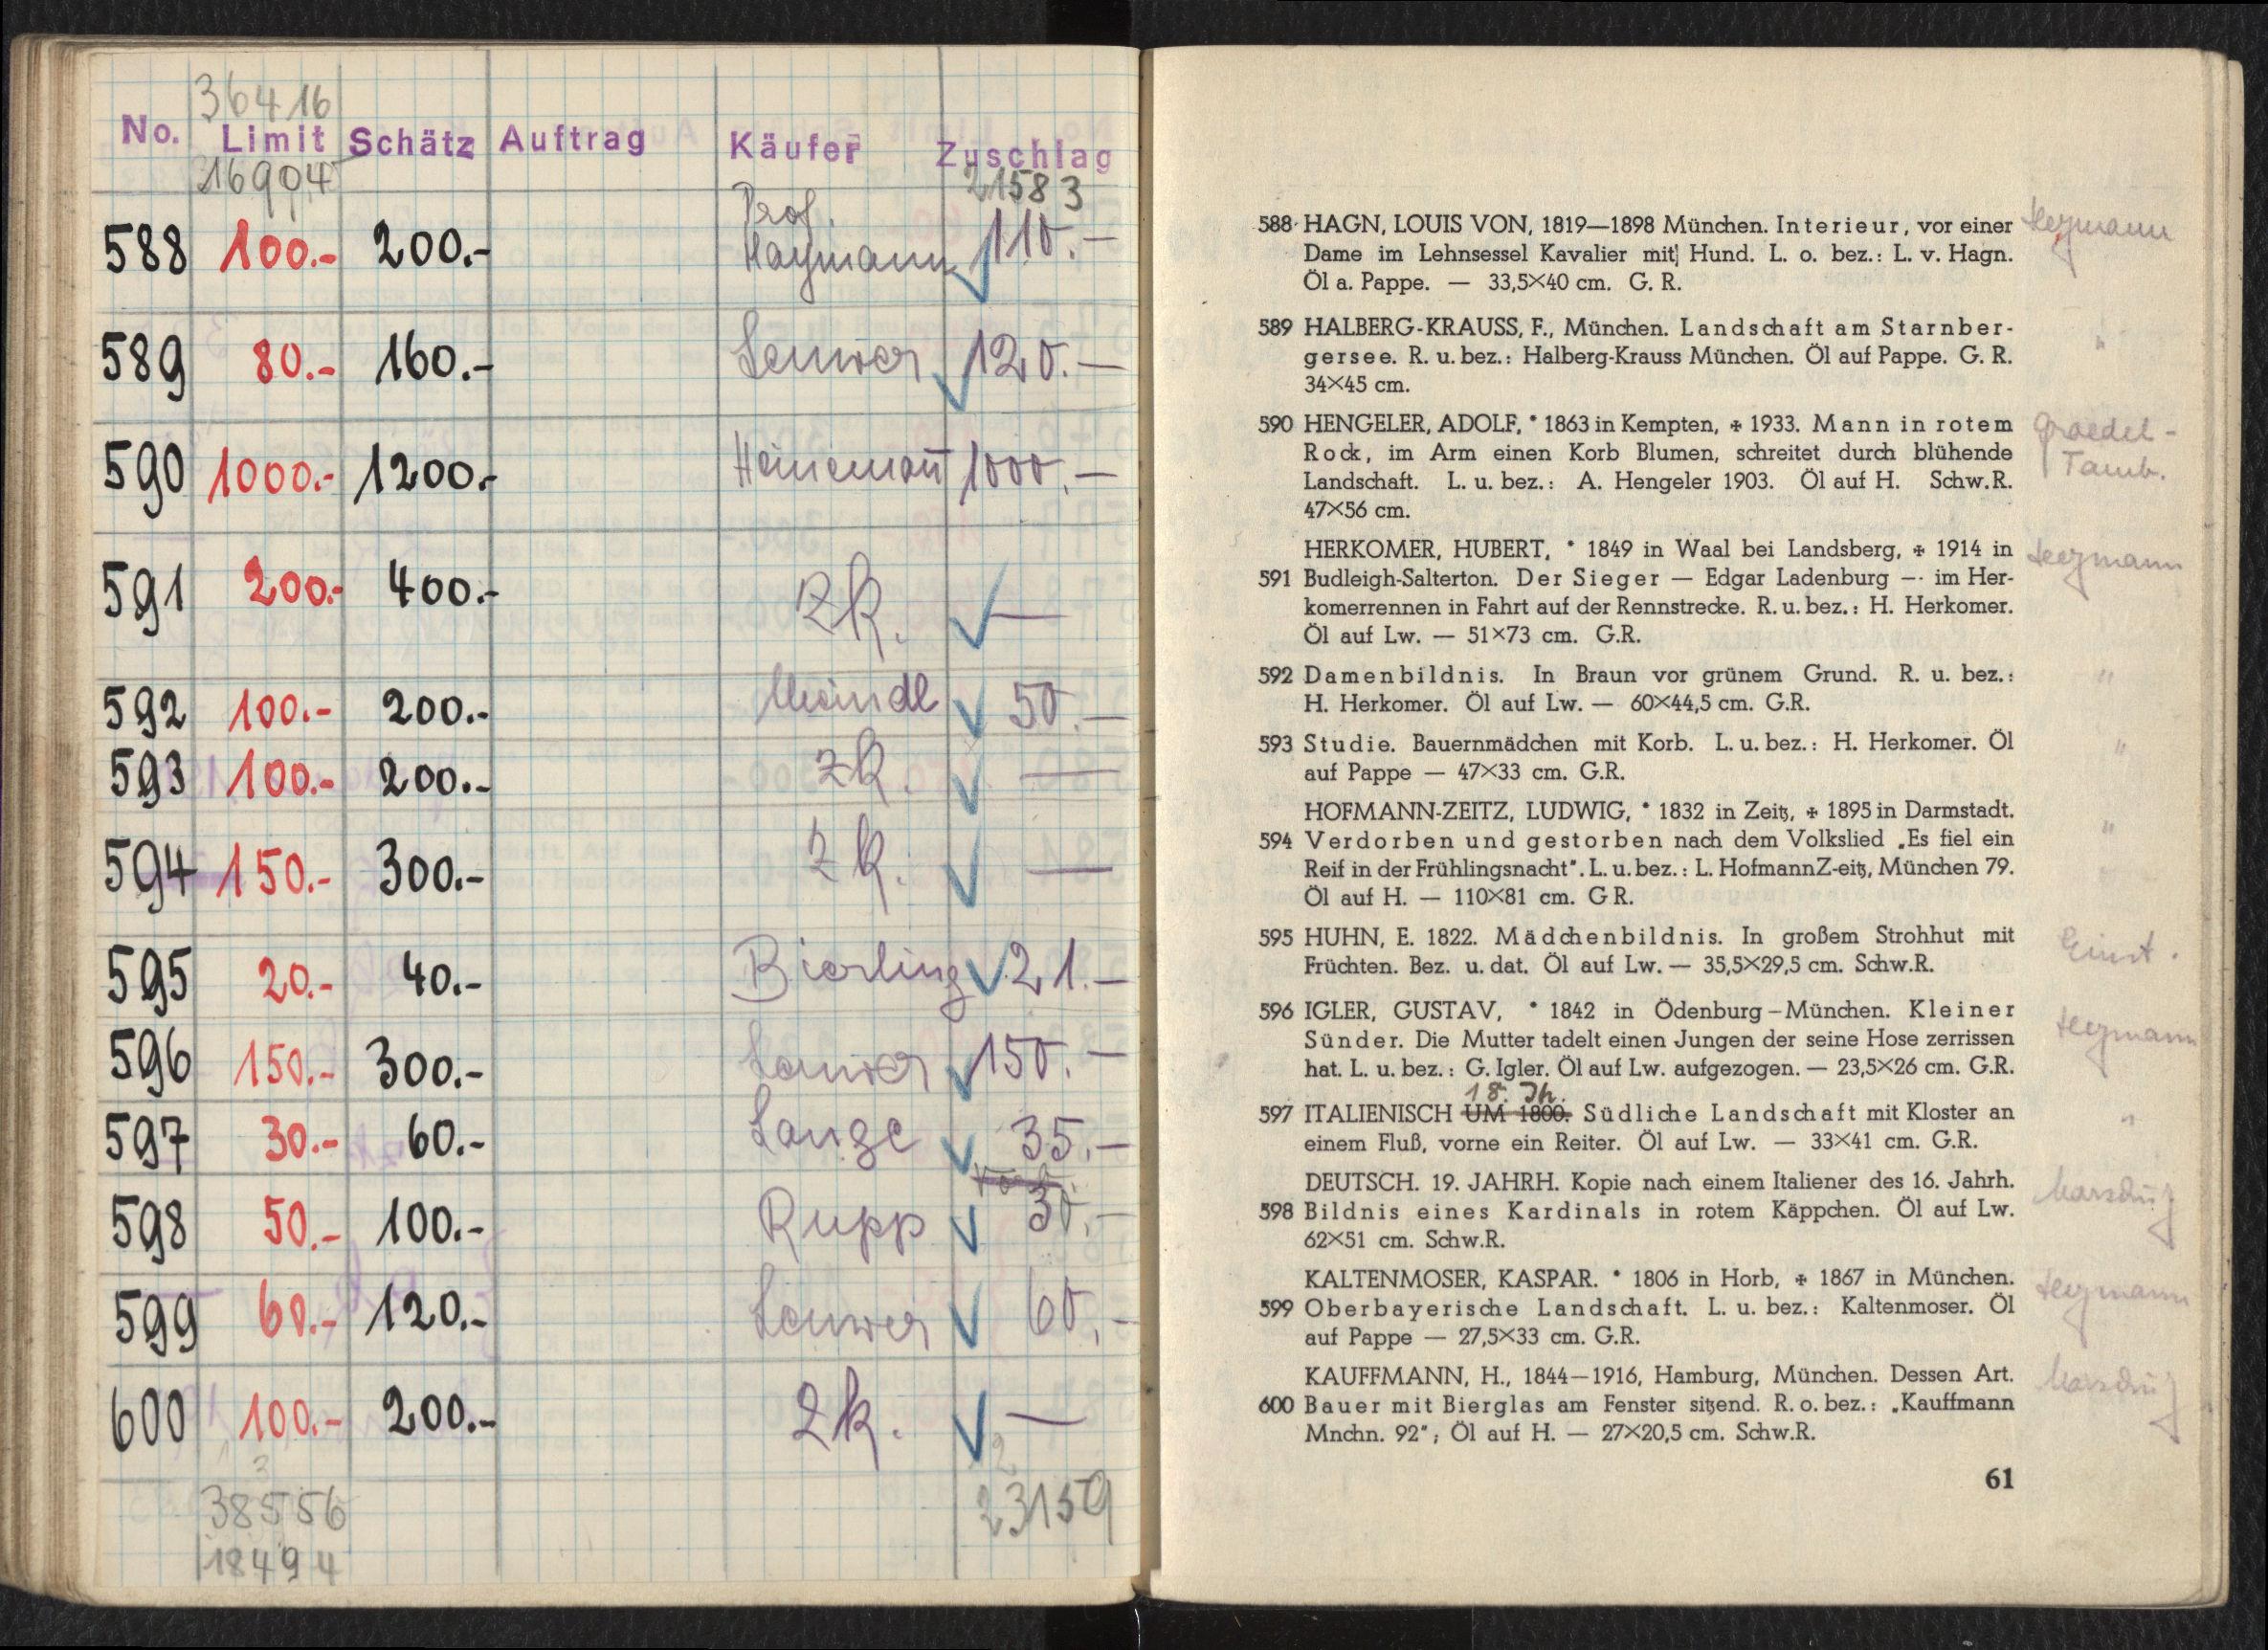 36416
No. Limit Schätz Auftrag Käufer Zuschlag
16904 21583
Prof.
588 100.- 200.- Haymann 110.-
589 80.- 160.- 120.-
590 1000.- 1200.- Heinemann 1000.-
591 200.- 400.- zk. —
592 100.- 200.- Meindl 50.-
593 100.- 200.- zk. —
594 150.- 300.- zk. —
595 20.- 40.- Bierling 21.-
596 150.- 300.- 150.-
597 30.- 60.- Lange 35.-
598 50.- 100.- Rupp 30.-
599 60.- 120.- 60.-
600 100.- 200.- zk. —
38556 23159
18494
588 HAGN, LOUIS VON, 1819—1898 München. Interieur, vor einer
Dame im Lehnsessel Kavalier mit Hund. L. o. bez.: L. v. Hagn.
Öl a. Pappe. — 33,5×40 cm. G. R.
589 HALBERG-KRAUSS, F., München. Landschaft am Starnber-
gersee. R. u. bez.: Halberg-Krauss München. Öl auf Pappe. G. R. "
34×45 cm.
590 HENGELER, ADOLF, * 1863 in Kempten, ✠ 1933. Mann in rotem
Rock, im Arm einen Korb Blumen, schreitet durch blühende
Landschaft. L. u. bez.: A. Hengeler 1903. Öl auf H. Schw.R.
47×56 cm.
HERKOMER, HUBERT, * 1849 in Waal bei Landsberg, ✠ 1914 in
591 Budleigh-Salterton. Der Sieger — Edgar Ladenburg —· im Her-
komerrennen in Fahrt auf der Rennstrecke. R. u. bez.: H. Herkomer.
Öl auf Lw. — 51×73 cm. G.R.
592 Damenbildnis. In Braun vor grünem Grund. R. u. bez.: "
H. Herkomer. Öl auf Lw. — 60×44,5 cm. G.R.
593 Studie. Bauernmädchen mit Korb. L. u. bez.: H. Herkomer. Öl "
auf Pappe — 47×33 cm. G.R.
HOFMANN-ZEITZ, LUDWIG, * 1832 in Zeitz, ✠ 1895 in Darmstadt.
594 Verdorben und gestorben nach dem Volkslied „Es fiel ein "
Reif in der Frühlingsnacht". L. u. bez.: L. HofmannZ-eitz, München 79.
Öl auf H. — 110×81 cm. G R.
595 HUHN, E. 1822. Mädchenbildnis. In großem Strohhut mit
Früchten. Bez. u. dat. Öl auf Lw. — 35,5×29,5 cm. Schw.R.
596 IGLER, GUSTAV, * 1842 in Ödenburg – München. Kleiner
Sünder. Die Mutter tadelt einen Jungen der seine Hose zerrissen
hat. L. u. bez.: G. Igler. Öl auf Lw. aufgezogen. — 23,5×26 cm. G.R.
18. Jh.
597 ITALIENISCH UM 1800. Südliche Landschaft mit Kloster an "
einem Fluß, vorne ein Reiter. Öl auf Lw. — 33×41 cm. G.R.
DEUTSCH. 19. JAHRH. Kopie nach einem Italiener des 16. Jahrh.
598 Bildnis eines Kardinals in rotem Käppchen. Öl auf Lw.
62×51 cm. Schw.R.
KALTENMOSER, KASPAR. * 1806 in Horb, ✠ 1867 in München.
599 Oberbayerische Landschaft. L. u. bez.: Kaltenmoser. Öl
auf Pappe — 27,5×33 cm. G.R.
KAUFFMANN, H., 1844—1916, Hamburg, München. Dessen Art.
600 Bauer mit Bierglas am Fenster sitzend. R. o. bez.: „Kauffmann
Mnchn. 92"; Öl auf H. — 27×20,5 cm. Schw.R.
61